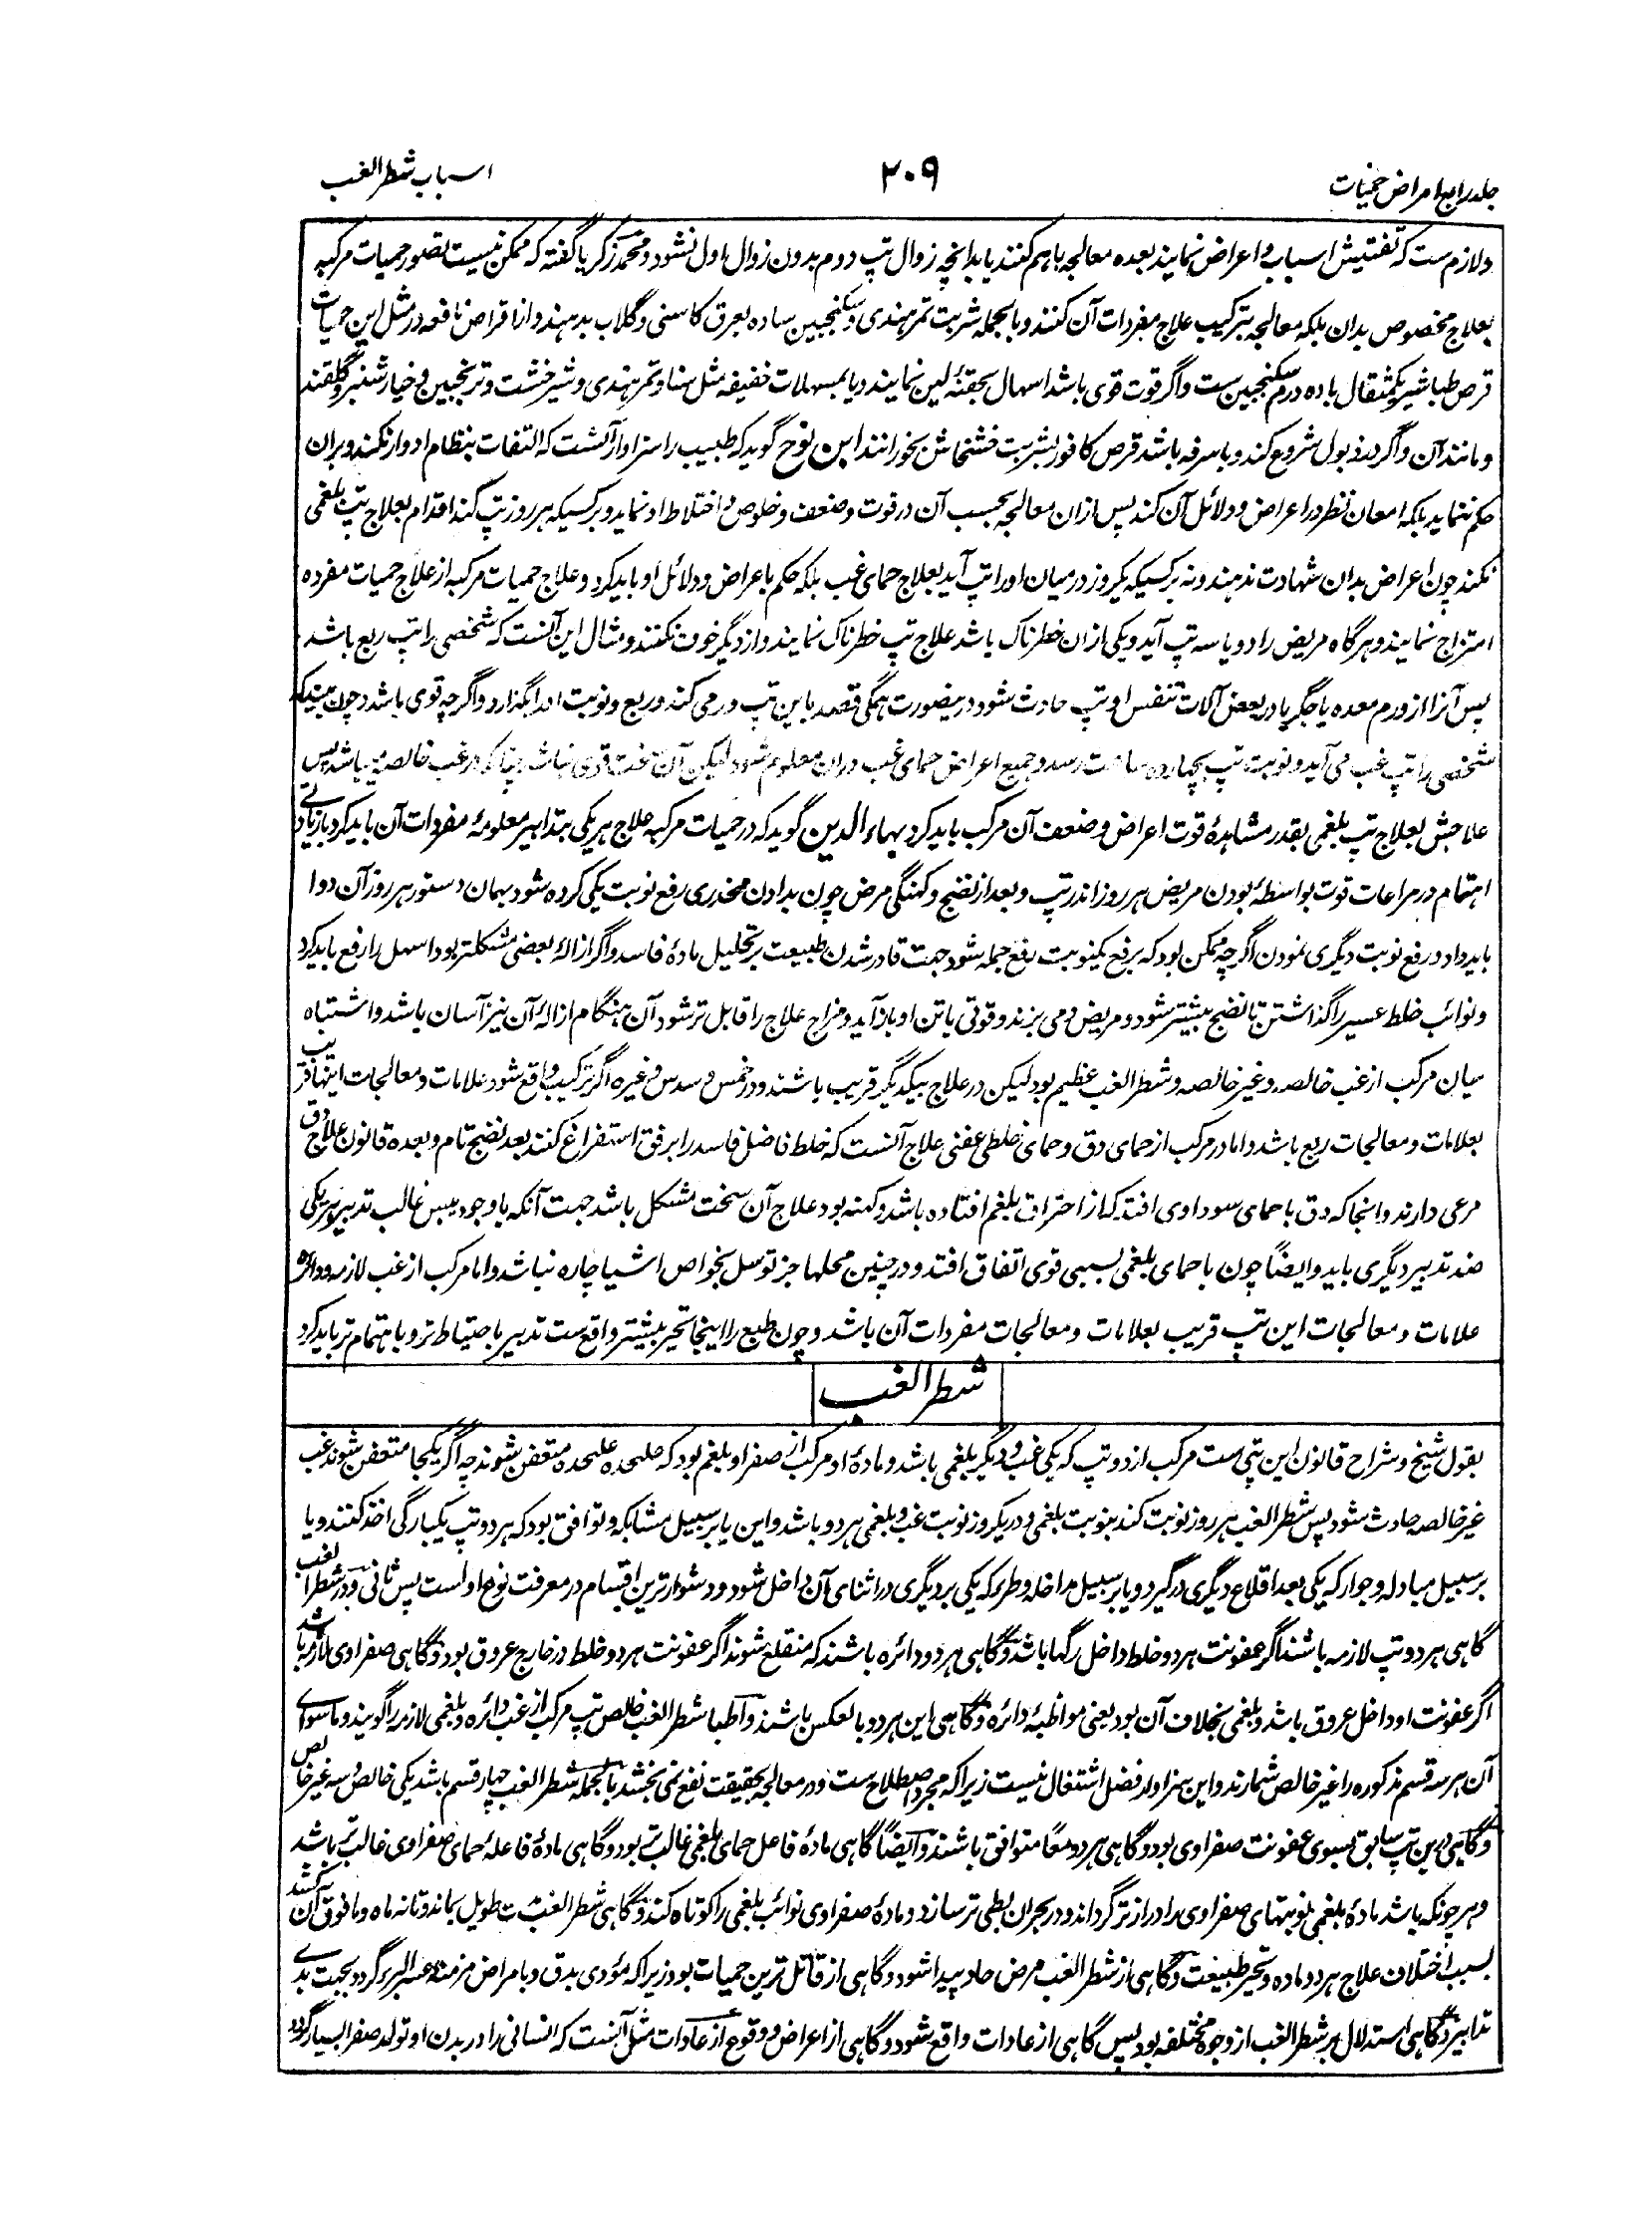 جلد رابع امراض حمیات
۲۰۹
اسباب شطر الغب
ولازم ست که تفتیش اسباب و اعراض نمایند بعده معالجه باهم کنند یا بدانچه زوال تپ دوم بدون زوال اول نشود و محمد زکریا گفته که ممکن نیست تصور حمیات مرکبه
بعلاج مخصوص بدان بلکه معالجه بترکیب علاج مفردات آن کنند و بالجمله شربت تمرهندی و سکنجبین ساده بعرق کاسنی و گلاب بدهند و از اقراص نافعه در مثل این حمیات
قرص طباشیر یکمثقال باده درم سکنجبین ست و اگر قوت قوی باشد اسهال بحقنهٔ لین نمایند و یا بمسهلات خفیفه مثل سنا و تمرهندی و شیرخشت و ترنجبین و خیارشنبر و گلقند
و مانند آن و اگر در ذبول شروع کند و با سرفه باشد قرص کافور بشربت خشخاش بخورانند ابن نوح گوید که طبیب را سزاوار آنست که التفات بنظام ادوار نکند و بران
حکم ننماید بلکه امعان نظر در اعراض و دلائل آن کند پس ازان معالجه بحسب آن در قوت و ضعف و خلوص و اختلاط او نماید و بر کسیکه هر روز تپ کند اقدام بعلاج تپ بلغمی
نکند چون اعراض بدان شهادت ندهند و نه بر کسیکه یکروز درمیان او را تپ آید بعلاج حمای غب بلکه حکم باعراض و دلائل او باید کرد و علاج حمیات مرکبه از علاج حمیات مفرده
امتزاج نمایند و هرگاه مریض را دو یا سه تپ آید و یکی ازان خطرناک باشد علاج تپ خطرناک نمایند و از دیگر خوف نکنند و مثال این آنست که شخصی را تپ ربع باشد
پس آنرا از ورم معده یا جگر یا در بعض آلات تنفس او تپ حادث شود درینصورت همگی قصد باین تپ ورمی کند و ربع و نوبت او را بگذارد و اگرچه قوی باشد و چون بیند که
شخصی را تپ غب می آید و نوبت تپ بچهارده ساعت رسد و جمیع اعراض حمای غب دران معلوم شود لیکن آن سخت قوی نباشد چنانکه در غب خالصه می باشد پس
علاجش بعلاج تپ بلغمی بقدر مشاهدهٔ قوت اعراض و ضعف آن مرکب باید کرد بهاء الدین گوید که در حمیات مرکبه علاج هر یکی بتدابیر معلومهٔ مفردات آن باید کرد با زیادتی
اهتمام در مراعات قوت بواسطهٔ بودن مریض هر روز اندر تپ و بعد از نضج و کهنگی مرض چون بدادن مخدری رفع نوبت یکی کرده شود بهمان دستور هر روز آن دوا
باید داد و رفع نوبت دیگری نمودن اگرچه ممکن بود که برفع یک نوبت رفع جمله شود جهت قادر شدن طبیعت بر تحلیل مادهٔ فاسد و اگر ازالهٔ بعضی مشکلتر بود اسهل را رفع باید کرد
و نوائب خلط عسیر را گذاشتن تا نضج بیشتر شود و مریض دمی بزند و قوتی باتن او باز آید و مزاج علاج را قابل تر شود آن هنگام ازالهٔ آن نیز آسان باشد و اشتباه
میان مرکب از غب خالصه و غیر خالصه و شطر الغب عظیم بود لیکن در علاج بیکدیگر قریب باشند و در خمس و سدس و غیره اگر ترکیب واقع شود علامات و معالجات اینها قریب
بعلامات و معالجات ربع باشد و اما در مرکب از حمای دق و حمای خلطی عفنی علاج آنست که خلط فاضل فاسد را برفق استفراغ کنند بعد نضج تام و بعده قانون علاج دق
مرعی دارند و اینجا که دق با حمای سوداوی افتد که از احتراق بلغم افتاده باشد و کهنه بود علاج آن سخت مشکل باشد جهت آنکه باوجود یبس غالب تدبیر هر یکی
ضد تدبیر دیگری باید و ایضاً چون با حمای بلغمی بسببی قوی اتفاق افتد و در چنین محلها جز توسل بخواص اشیا چاره نباشد و اما مرکب از غب لازمه و دائره
علامات و معالجات این تپ قریب بعلامات و معالجات مفردات آن باشد و چون طبع را اینجا تحیر بیشتر واقع ست تدبیر باحتیاط تر و باهتمام تر باید کرد
شطر الغب
بقول شیخ و شراح قانون این تپی ست مرکب از دو تپ که یکی غب و دیگر بلغمی باشد و مادهٔ او مرکب از صفرا و بلغم بود که علیحده علیحده متعفن شوند چه اگر یکجا متعفن شوند غب
غیر خالصه حادث شود پس شطر الغب هر روز نوبت کند بنوبت بلغمی و در یکروز نوبت غب و بلغمی هر دو باشد و این یا بر سبیل مشابکه و توافق بود که هر دو تپ یکبارگی اخذ کنند و یا
بر سبیل مبادله و جوار که یکی بعد اقلاع دیگری درگیرد و یا بر سبیل مداخله و طریکه یکی بر دیگری در اثنای آن داخل شود و دشوارترین اقسام در معرفت نوع اول است پس ثانی و در شطر الغب
گاهی هر دو تپ لازمه باشند اگر عفونت هر دو خلط داخل رگها باشد و گاهی هر دو دائره باشند که منقلع شوند اگر عفونت هر دو خلط در خارج عروق بود و گاهی صفراوی لازمه باشد
اگر عفونت او داخل عروق باشد و بلغمی بخلاف آن بود یعنی مواظبهٔ دائره و گاهی این هر دو بالعکس باشند و اطبا شطر الغب خالص تپ مرکب از غب دائره و بلغمی لازمه را گویند و ماسوای
آن هر سه قسم مذکوره را غیر خالص شمارند و این سزاوار فضل اشتغال نیست زیرا که مجرد اصطلاح ست و در معالجه بحقیقت نفع نمی بخشد بالجمله شطر الغب چهار قسم باشد یکی خالص و سه غیر خالص
و گاهی درین تپ سابق بسوی عفونت صفراوی بود و گاهی هر دو معاً متوافق باشند و ایضاً گاهی مادهٔ فاعل حمای بلغمی غالب تر بود و گاهی مادهٔ فاعلهٔ حمای صفراوی غالب تر باشد
و هر چونکه باشد مادهٔ بلغمی نوبتهای صفراوی را دراز تر گرداند و در بحران بطی تر سازد و مادهٔ صفراوی نوائب بلغمی را کوتاه کند و گاهی شطر الغب مدت طویل بماند و تا نه ماه و مافوق آن کشد
بسبب اختلاف علاج هر دو ماده و تحیر طبیعت و گاهی از شطر الغب مرض حاد پیدا شود و گاهی از قاتل ترین حمیات بود زیرا که مؤدی بدق و بامراض مزمنه عسر البرء گردد بجهت بدی
تدابیر و گاهی استدلال بر شطر الغب از وجوه مختلفه بود پس گاهی از عادات واقع شود و گاهی از اعراض و وقوع از عادات مثل آنست که انسانی را در بدن او تولد صفرا بسیار گردد